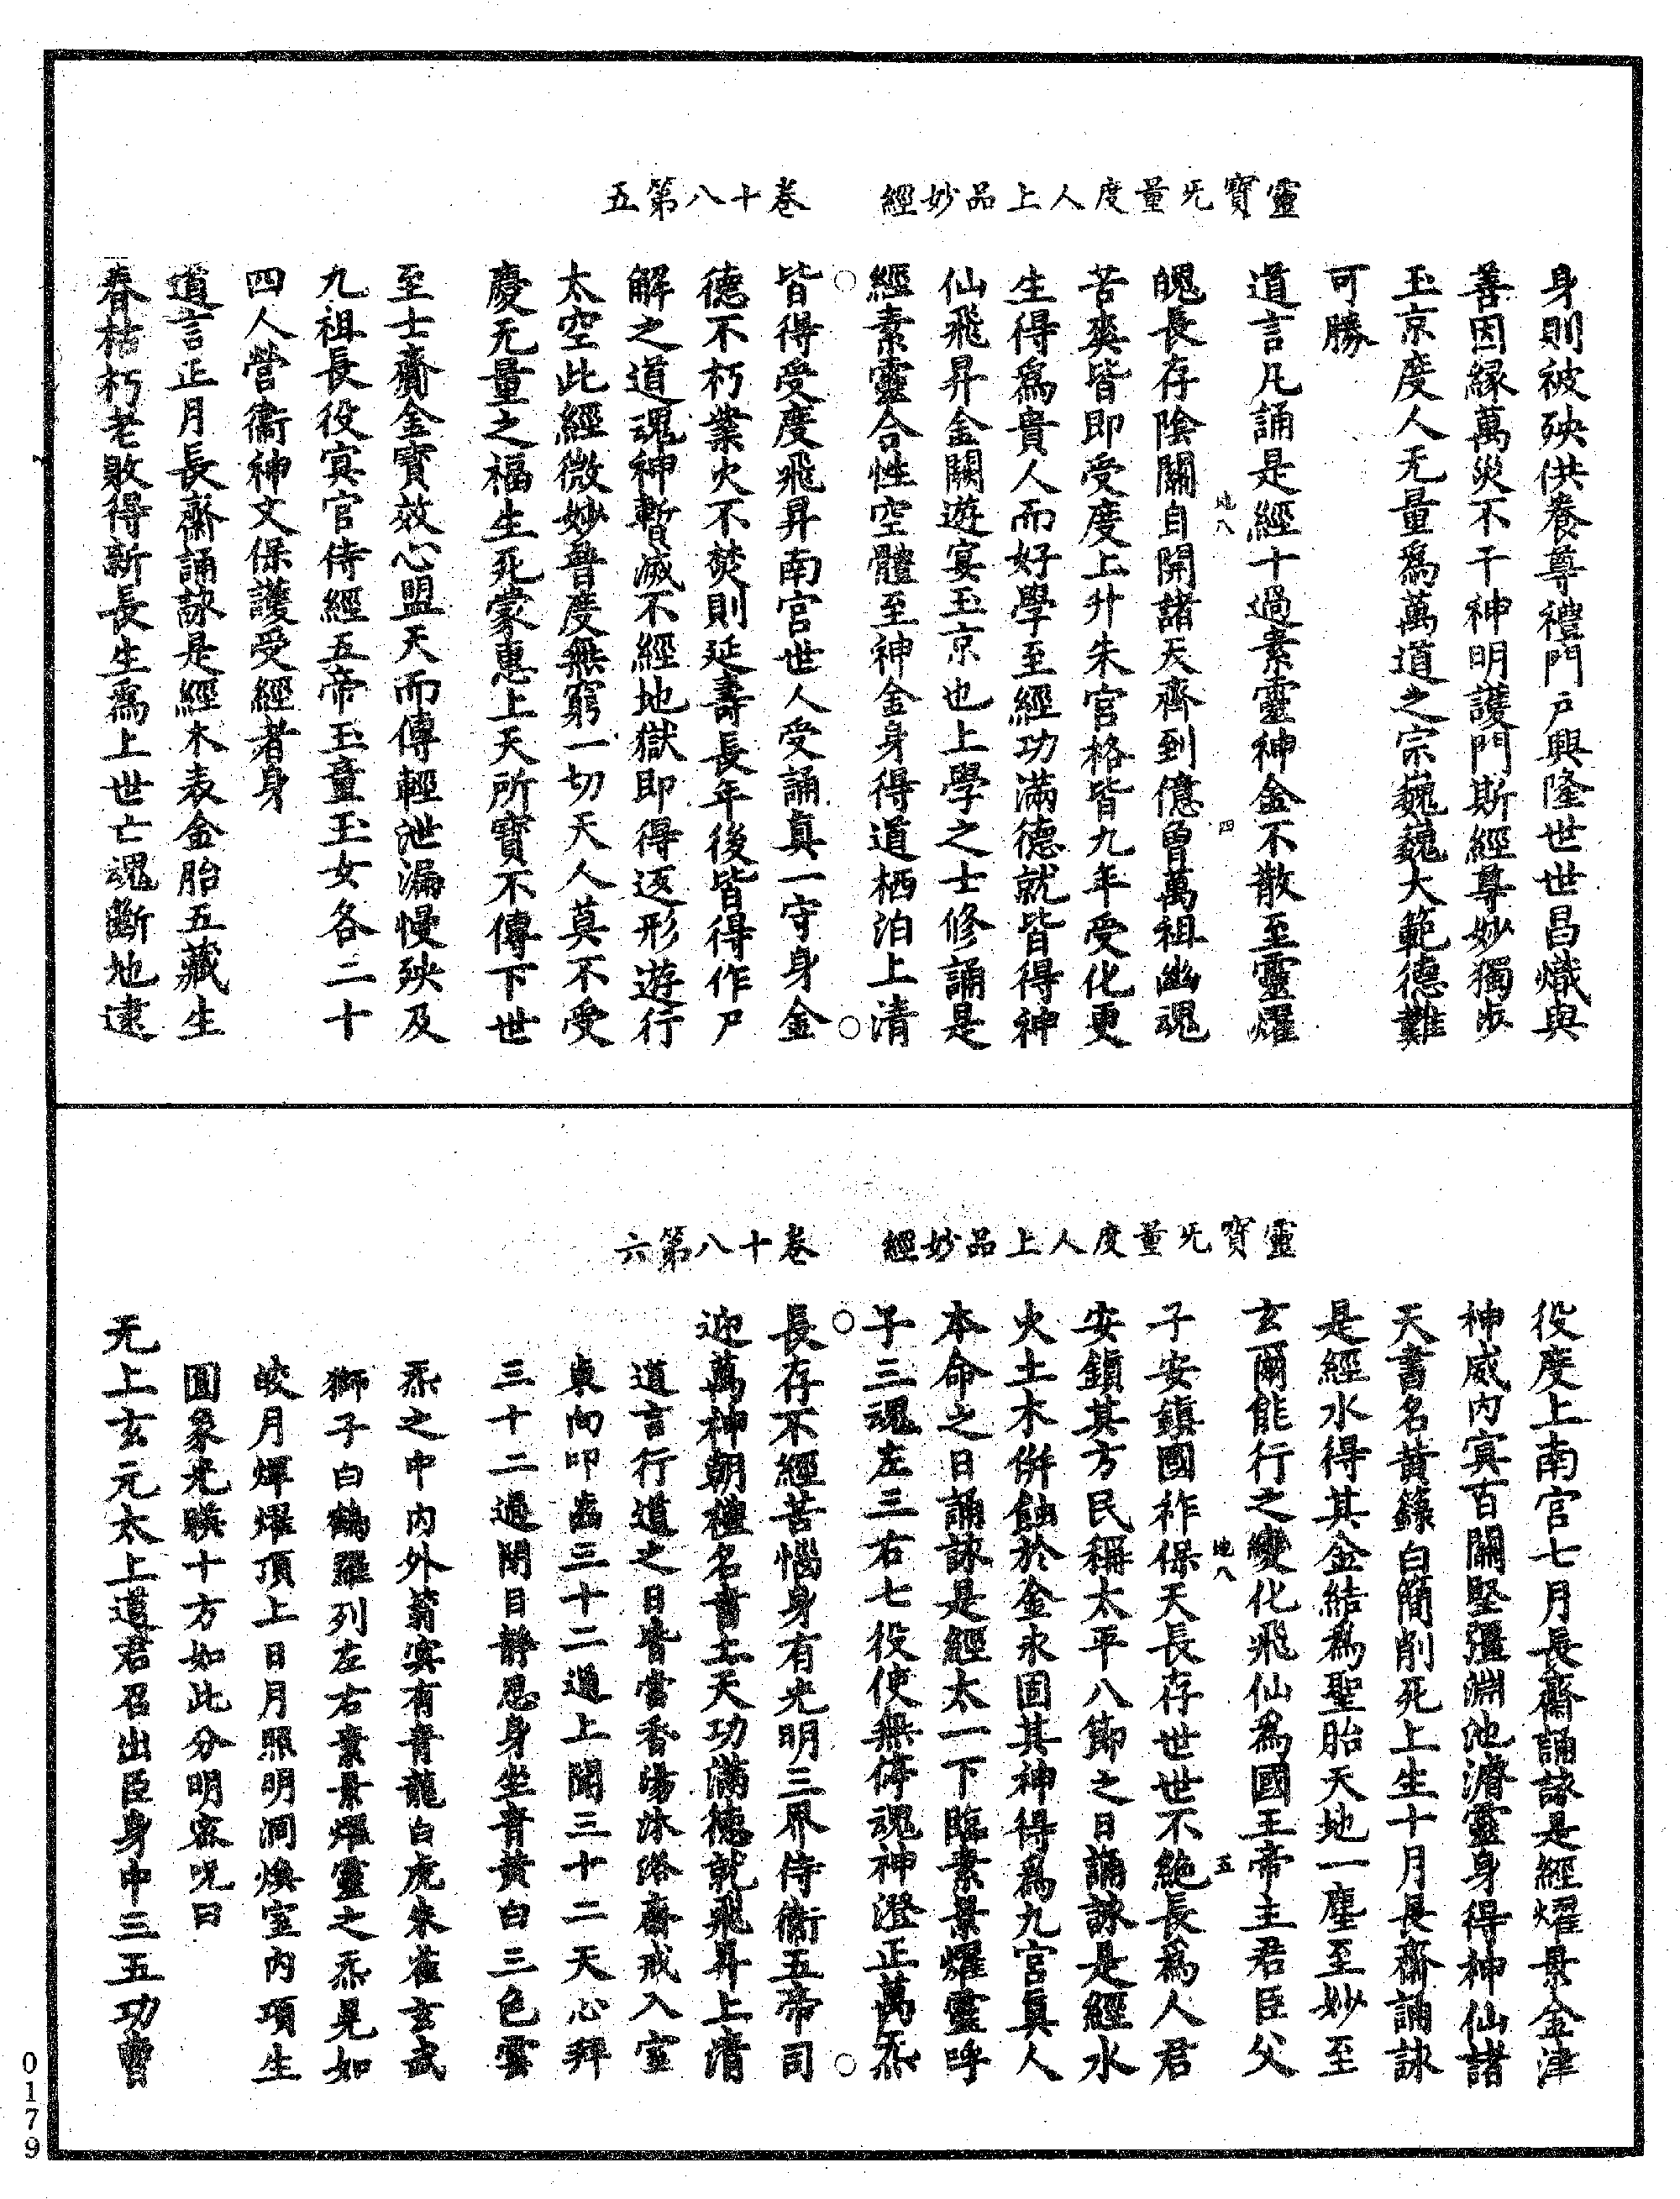 靈寶无量度人上品妙經　卷十八第五
身則被殃供養尊禮門戶興隆世世昌熾與
善因緣萬災不干神明護門斯經尊妙獨步
玉京度人无量為萬道之宗巍巍大範德難
可勝
道言凡誦是經十過素靈神金不散至靈耀
魄長存陰關自開諸天齊到億曾萬祖幽魂
苦爽皆即受度上升朱宮格皆九年受化更
生得為貴人而好學至經功滿德就皆得神
仙飛昇金闕遊宴玉京也上學之士修誦是
經素靈合性空體至神金身得道栖泊上清
皆得受度飛昇南宮世人受誦真一守身金
德不朽業火不焚則延壽長年後皆得作尸
解之道魂神暫滅不經地獄即得返形遊行
太空此經微妙普度無窮一切天人莫不受
慶无量之福生死蒙惠上天所寶不傳下世
至士齎金寶效心盟天而傳輕泄漏慢殃及
九祖長役冥官侍經五帝玉童玉女各二十
四人營衛神文保護受經者身
道言正月長齋誦詠是經木表金胎五藏生
春枯朽老敗得新長生為上世亡魂斷地逮
地八
四
靈寶无量度人上品妙經　卷十八第六
役度上南宮七月長齋誦詠是經耀景金津
神威內冥百關堅彊淵池濬靈身得神仙諸
天書名黃籙白簡削死上生十月長齋誦詠
是經水得其金結為聖胎天地一塵至妙至
玄爾能行之變化飛仙為國王帝主君臣父
子安鎮國祚保天長存世世不絕長為人君
安鎮其方民稱太平八節之日誦詠是經水
火土木併蝕於金永固其神得為九宮真人
本命之日誦詠是經太一下臨素景耀靈呼
子三魂左三右七役使無停魂神澄正萬炁
長存不經苦惱身有光明三界侍衛五帝司
迎萬神朝禮名書上天功滿德就飛昇上清
道言行道之日皆當香湯沐浴齋戒入室
東向叩齒三十二通上聞三十二天心拜
三十二過閉目靜思身坐青黃白三色雲
炁之中內外蓊冥有青龍白虎朱雀玄武
獅子白鶴羅列左右素景耀靈之炁晃如
皎月煇耀頂上日月照明洞煥室內項生
圓象光暎十方如此分明密呪曰
无上玄元太上道君召出臣身中三五功曹
地八
五
0179